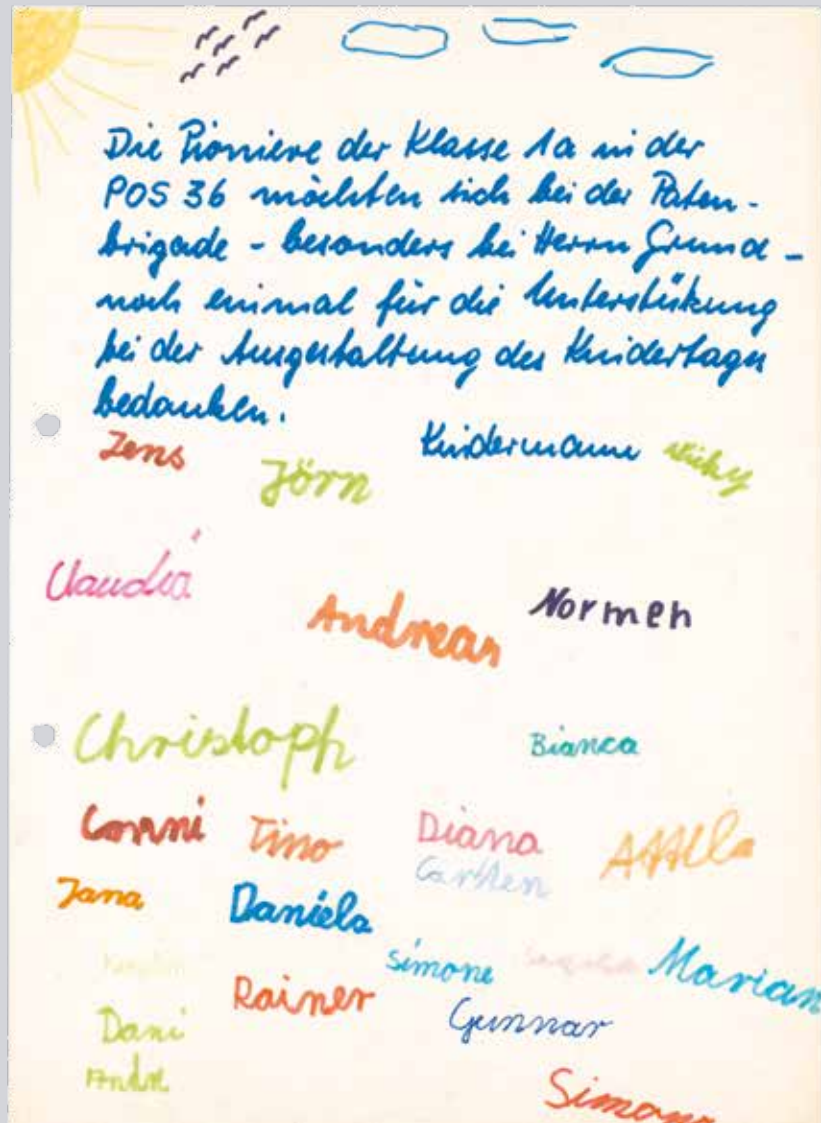 Die Pioniere der Klasse 1a in der
POS 36 möchten sich bei der Paten-
brigade - besonders bei Herrn Grund -
noch einmal für die Unterstükung
bei der Ausgestaltung des Kindertages
bedanken.
Kindermann
Jens Jörn Nicky
Claudia
Andreas Normen
Christoph Bianca
Conni Tino Diana Attila
Carsten
Jana Daniela
Simone Marian
Rainer Gunnar
Dani
André
Simone